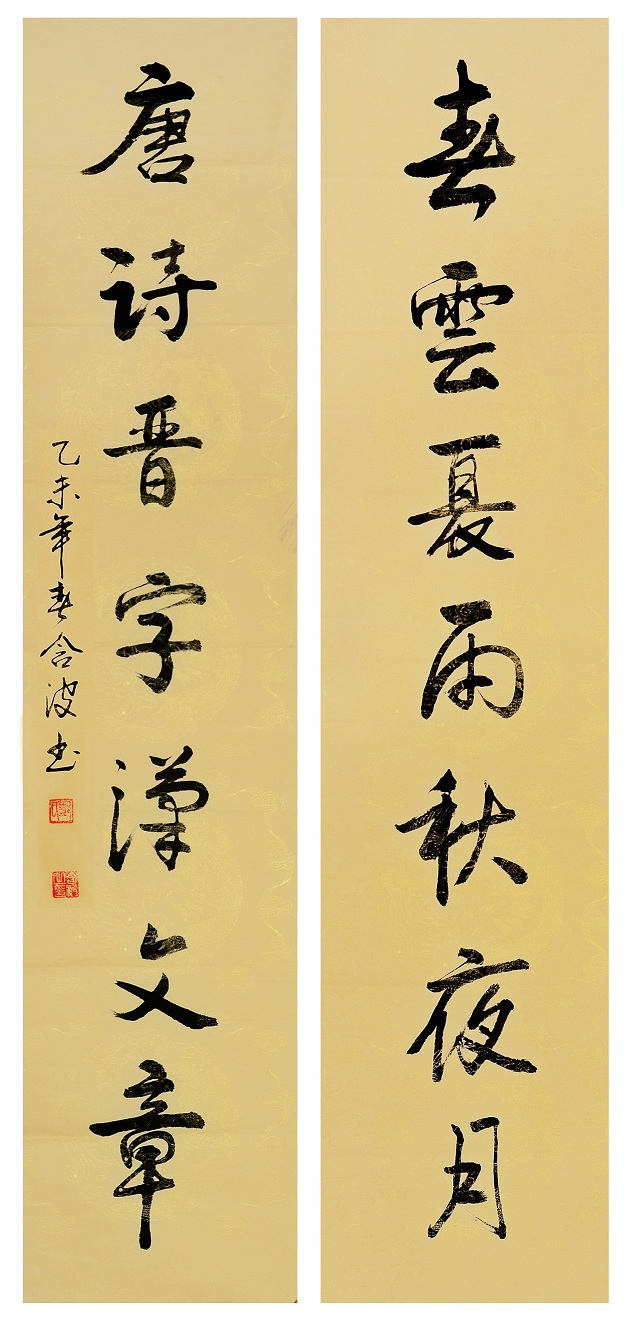 春雲夏雨秋夜月
唐诗晋字漢文章
乙未年春含波书